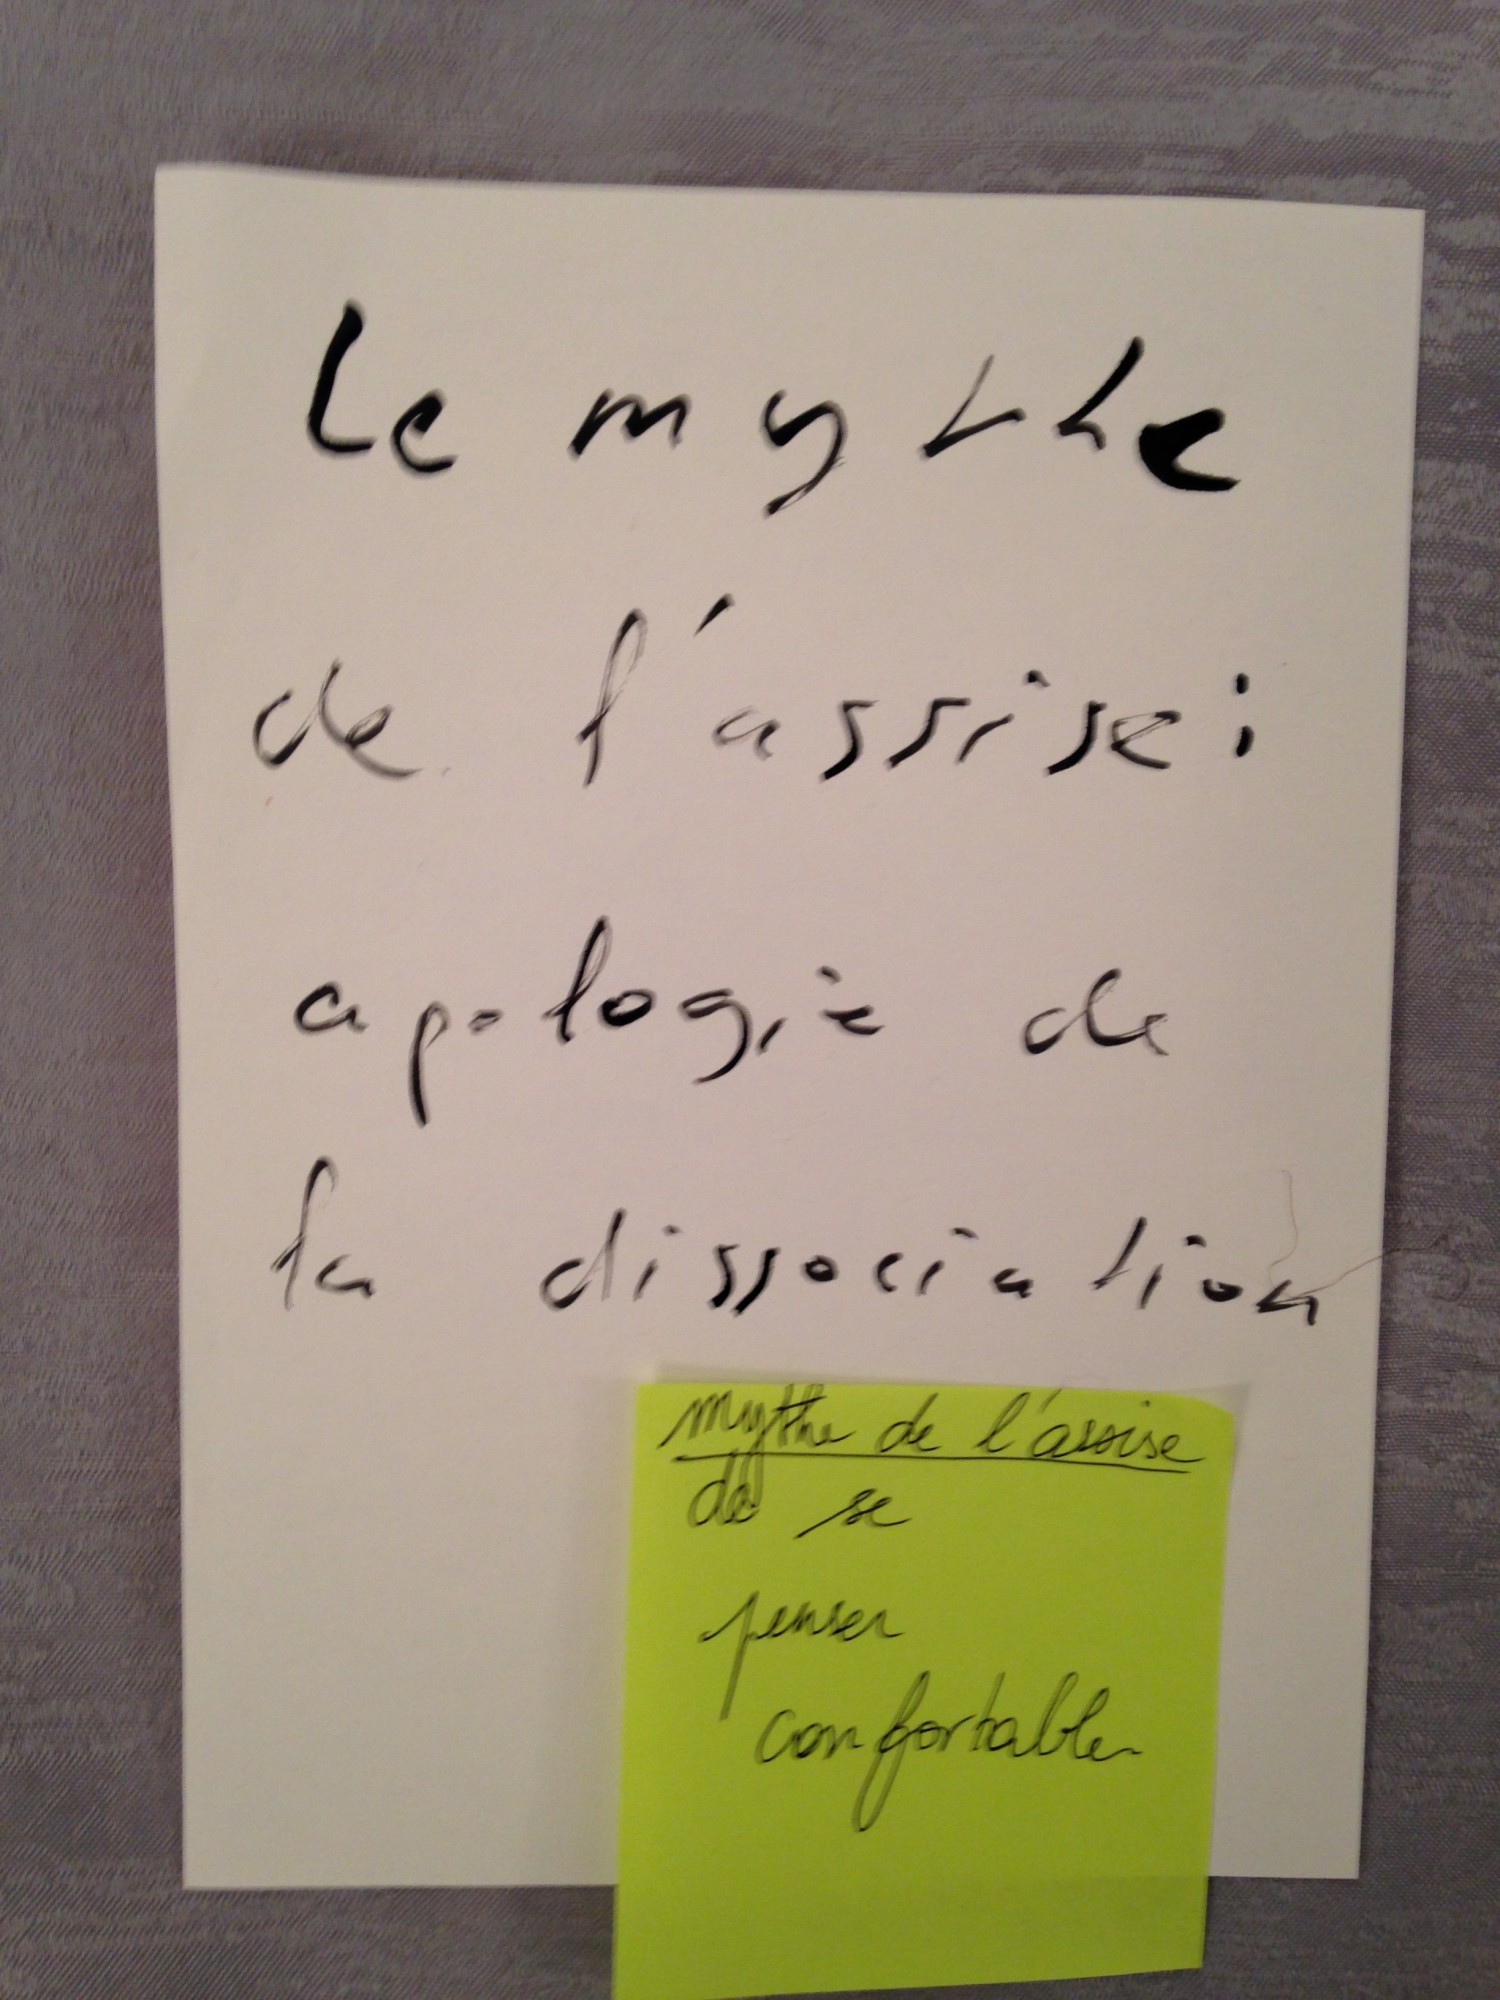 le mythe
de l'assise :
apologie de
la dissociation
mythe de l'assise
de se
penser
confortable